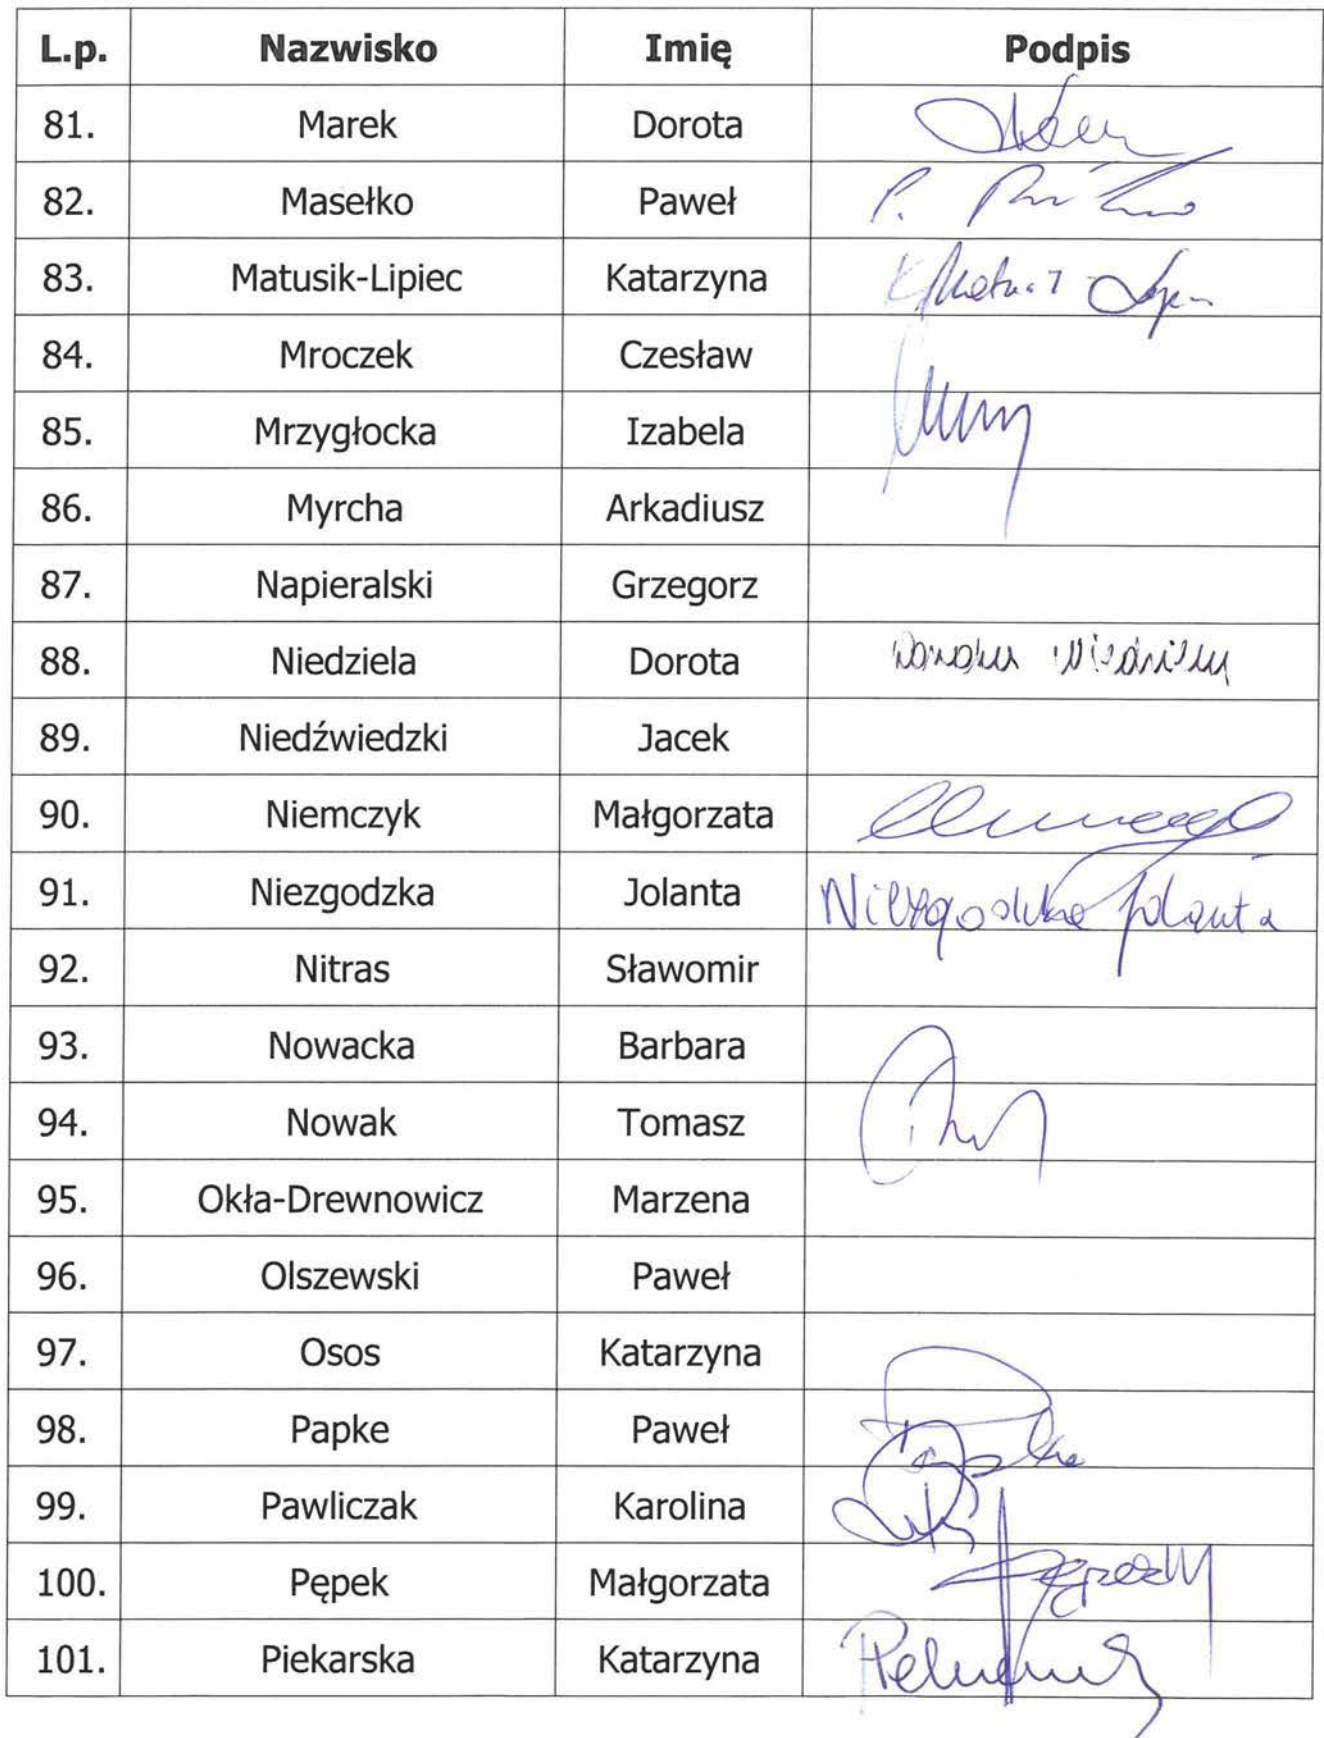 L.p. Nazwisko Imię Podpis
81. Marek Dorota
82. Masełko Paweł P.
83. Matusik-Lipiec Katarzyna
84. Mroczek Czesław
85. Mrzygłocka Izabela
86. Myrcha Arkadiusz
87. Napieralski Grzegorz
88. Niedziela Dorota
89. Niedźwiedzki Jacek
90. Niemczyk Małgorzata
91. Niezgodzka Jolanta Niezgodzka Jolanta
92. Nitras Sławomir
93. Nowacka Barbara
94. Nowak Tomasz
95. Okła-Drewnowicz Marzena
96. Olszewski Paweł
97. Osos Katarzyna
98. Papke Paweł
99. Pawliczak Karolina
100. Pępek Małgorzata
101. Piekarska Katarzyna